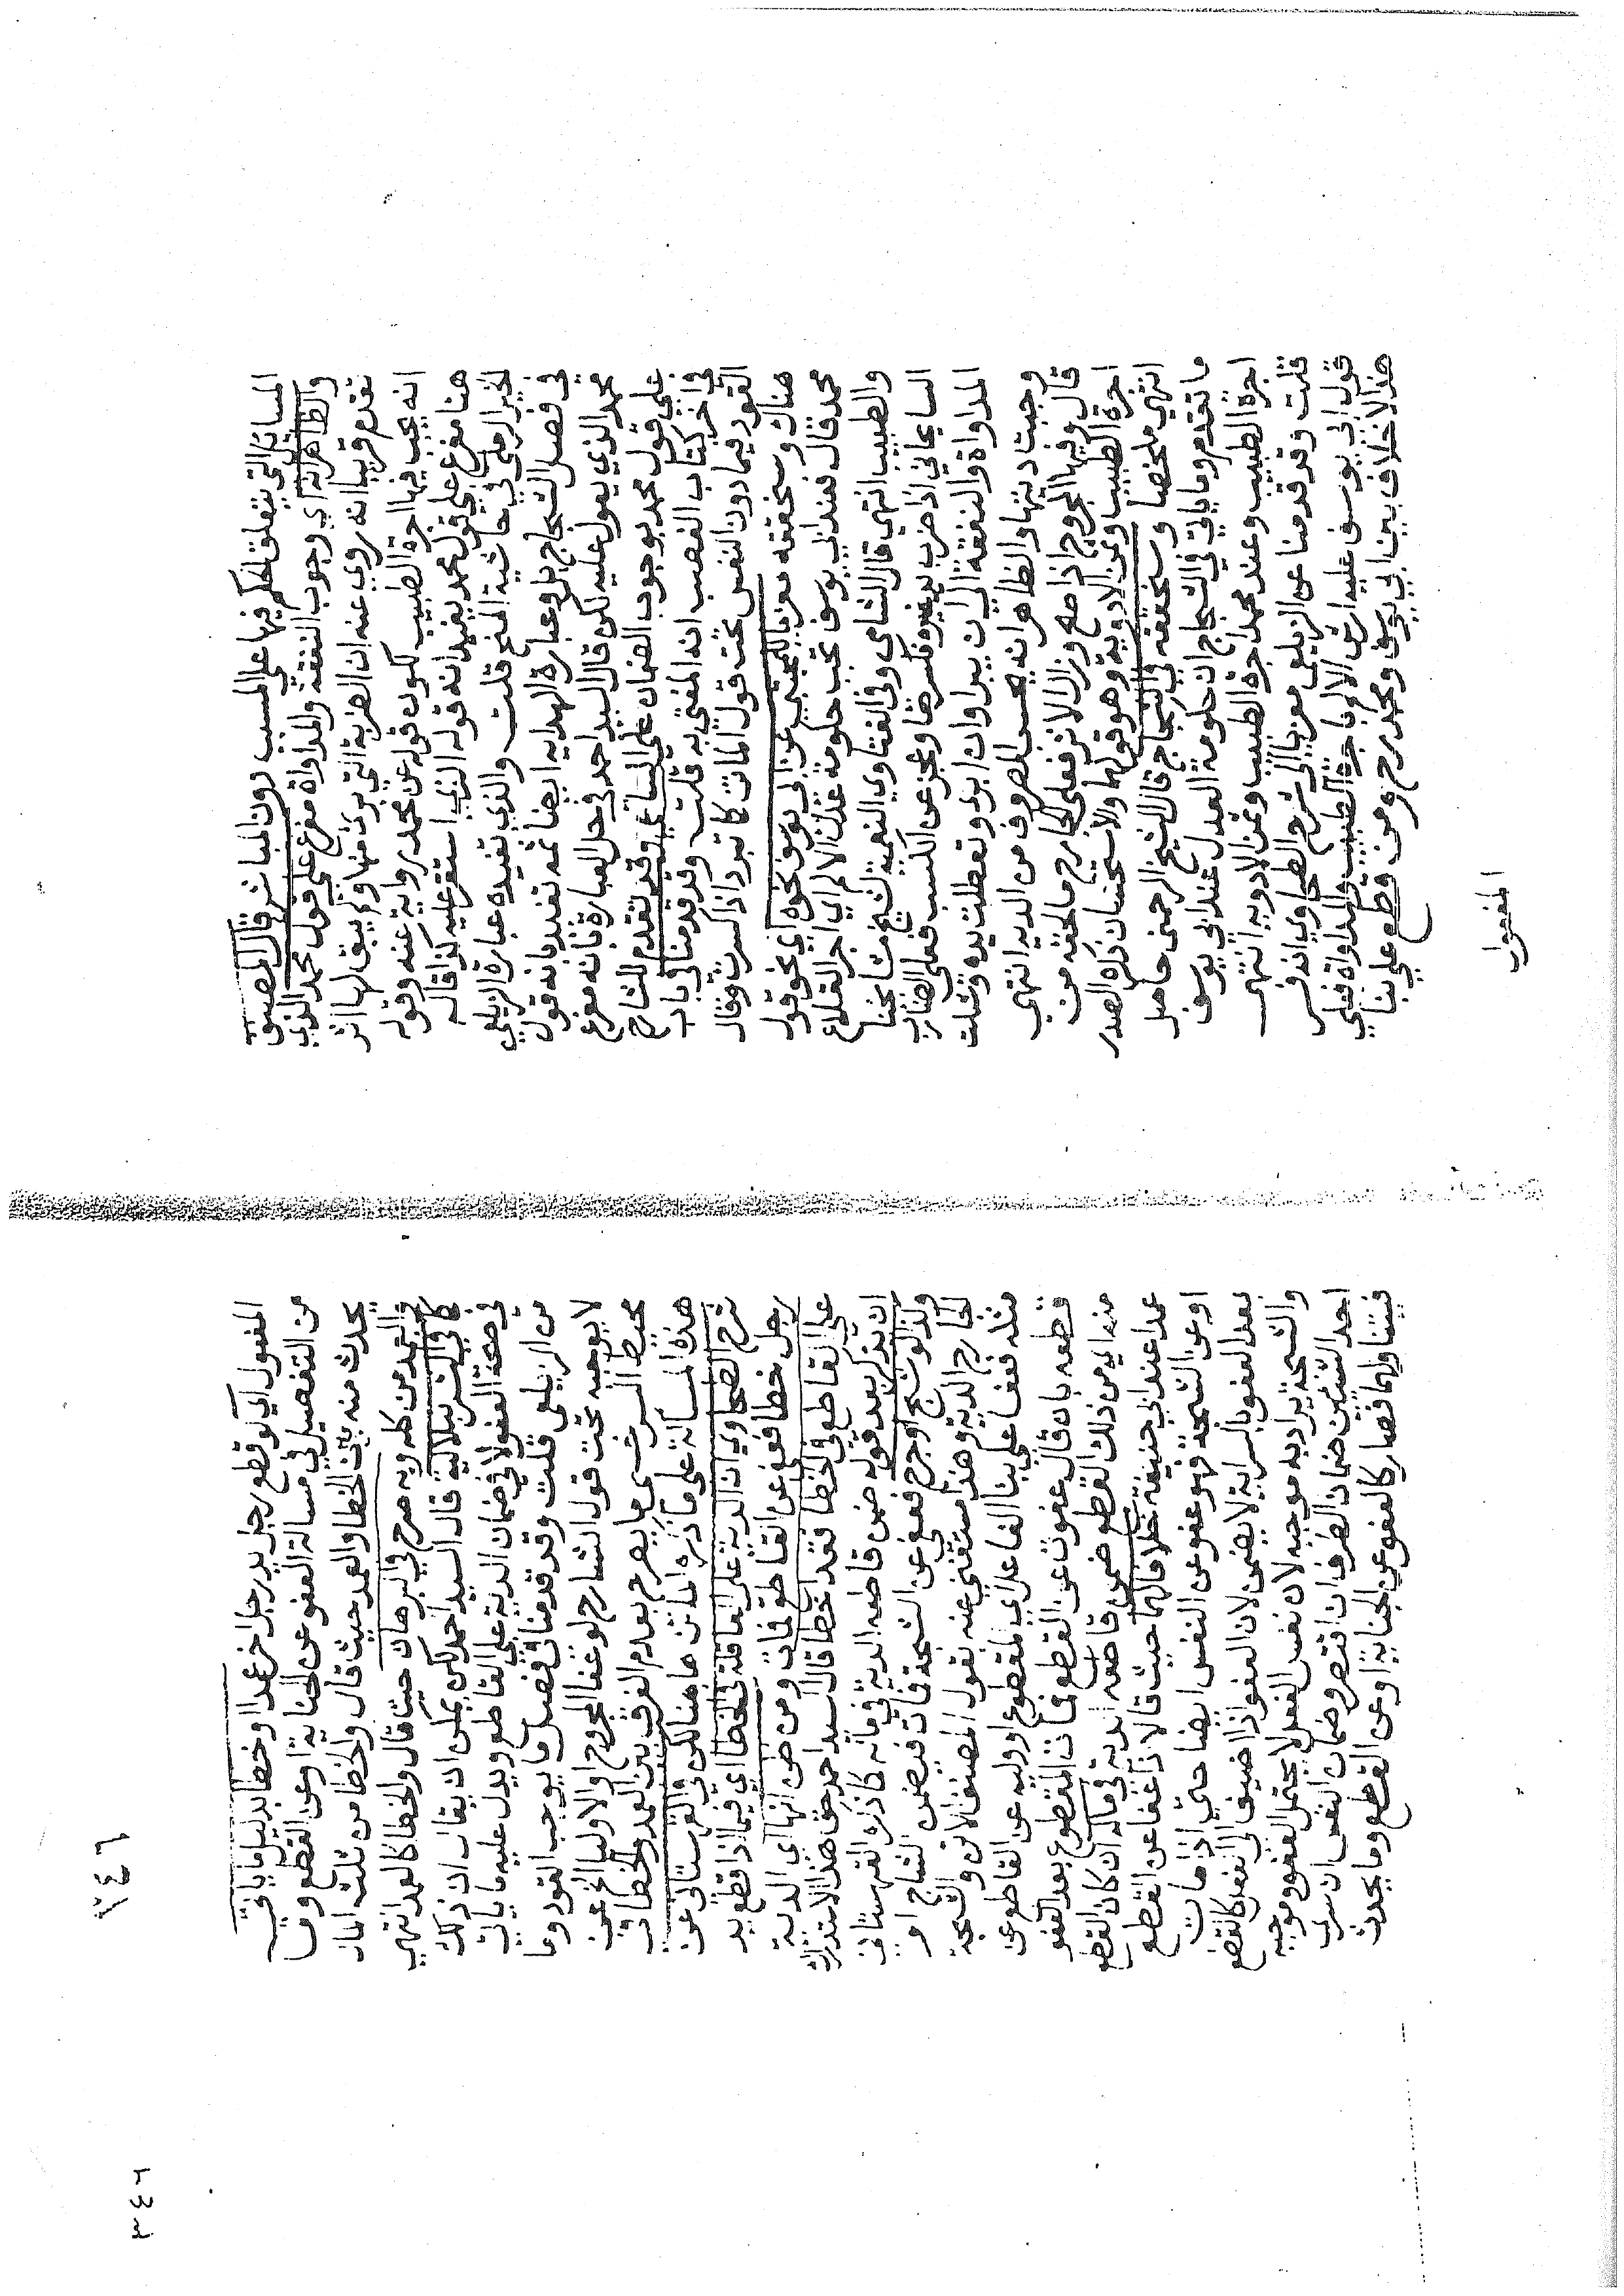 المسائل التي يتعلق الحكم فيها على المسبب دون المباشر قال المصنف
والظاهر انه اي وجوب النفقة والمداواة مفرع على قول محمد الذي
تقدم قريبا انه روي عنه ان الضربة التي برئ منها ولم يبق لها اثر
انه يجب فيها اجرة الطبيب لكون قوله عن محمد رواية عنه وقوله
هنا مفرع على قول محمد يفيد انه قوله الذي استقر عليه كذا قاله
الخير الرملي في حاشية المنح قلت والذي تفيده عبارة الزيلعي
في فصل الشجاج بل وعبارة الهداية ايضا ثمه تفيد بانه قول
محمد الذي يعول عليه لكن قال السيد احمد في حل العبارة بانه مفرع
على قول محمد بوجوب الضمان على الساعي وقد تقدم للشارح
في اخر كتاب الغصب انه المفتى به قلت وقد قدمنا في باب
القود فيما دون النفس تحت قول الماتن كما تبرد اذ كسرت وقال
هناك وسنحققه معزيا للمجتبى عن ابي يوسف نحوه اي نحو قول
محمد قال فعند ابي يوسف تجب حكومة عدل الالم اي اجر القلاع
والطبيب انتهى قال الشامي وفي الفتاوى النعمية لشيخ مشايخنا
السايحاني اذا ضرب يد غيره فكسرها وعجز عن الكسب فعلى الضارب
المداواة والنفقة الى ان يبرأ وان ابرئ وتعطلت يده وشلت
وجبت ديتها والظاهر انه يحسب المصروف من الدية انتهى
قال وفيها المجروح اذا صح وزال الاثر فعلى الجارح ما لحقه من
اجرة الطبيب وثمن الادوية وهو قولهما والاستحسان ذكره الصدر
انتهى ملخصا وسنحققه في الشجاج قال الشيخ الرحمتي حاصل
ما تقدم وما ياتي في الشجاج ان حكومة العدل عند ابي يوسف
اجرة الطبيب وعند محمد اجرة الطبيب وثمن الادوية انتهى
قلت وقد قدمنا عن الزيلعي معزيا الى شرح الطحاوي انه فسر
قول ابي يوسف عليه ارش الالم باجرة الطبيب والمداواة فعلى
هذا لا خلاف بين ابي يوسف ومحمد رح ومن قطع على بنا
المفعول
المفعول اي لو قطع رجل يد رجل اخر عمدا او خطا بدليل ما ياتي
من التفصيل في مسالة العفو عن الجناية او عن القطع وما
يحدث منه بين الخطا والعمد حيث قال والخطا من ثلث المال
والعمد من كله وبه صرح في البرهان حيث قال والخطا كالعمد انتهى
كما في الشرنبلالية قال السيد احمد لكن يمكن ان يقال ان ذلك
في صحة العفو لا في ضمان الدية على القاطع ويدل عليه ما ياتي
من الزيلعي قلت وقد قدمنا في فصل ما يوجب القود وما
لا يوجبه تحت قول الشارح لو عفا المجروح او الاوليا الخ عن
محيط السرخسي ما يصرح بعدم الفرق بين العمد والخطا في
هذه المسالة على ما ذكره الماتن هاهنا لكن في القهستاني عن
شرح الطحاوي ان الدية على العاقلة في الخطا اي فيما اذا قطع يد
رجل خطا فعفى عن القاطع فمات ومن ظن انها اي الدية
على القاطع في الخطا فقد اخطا قال السيد احمد حق هذا الاستدراك
ان يذكر بعد قوله ضمن قاطعه الدية في ماله كما ذكره القهستاني
وكذا لو شج او جرح فعفي عن الشجة فمات فيضمن الشاج او
الجارح الدية وهذا مستغنى عنه بقول المصنف الاتي والشجة
مثله فعفا على بنا الفاعل اي المقطوع او وليه عن القاطع عن
قطعه بان قال عفوت عن القطع فمات المقطوع بعد العفو
منه اي من ذلك القطع ضمن قاطعه الدية في ماله ان كان القطع
عمدا عند ابي حنيفة خلافا لهما حيث قالا اذا عفا عن القطع
او عن الشجة فهو عفو عن النفس ايضا حتى اذا مات
بعد العفو بالسراية لا يضمن لان العفو اذا اضيف الى الفعل كالقطع
والشجة يراد به موجبه لان نفس الفعل لا يحتمل العفو وموجبه
احد الشيئين ضمان الطرف ان اقتصر وضمان النفس ان سرى
فيتناولهما فصار كالعفو عن الجناية او عن القطع وما يحدث
٢٤٦
٢٤٣